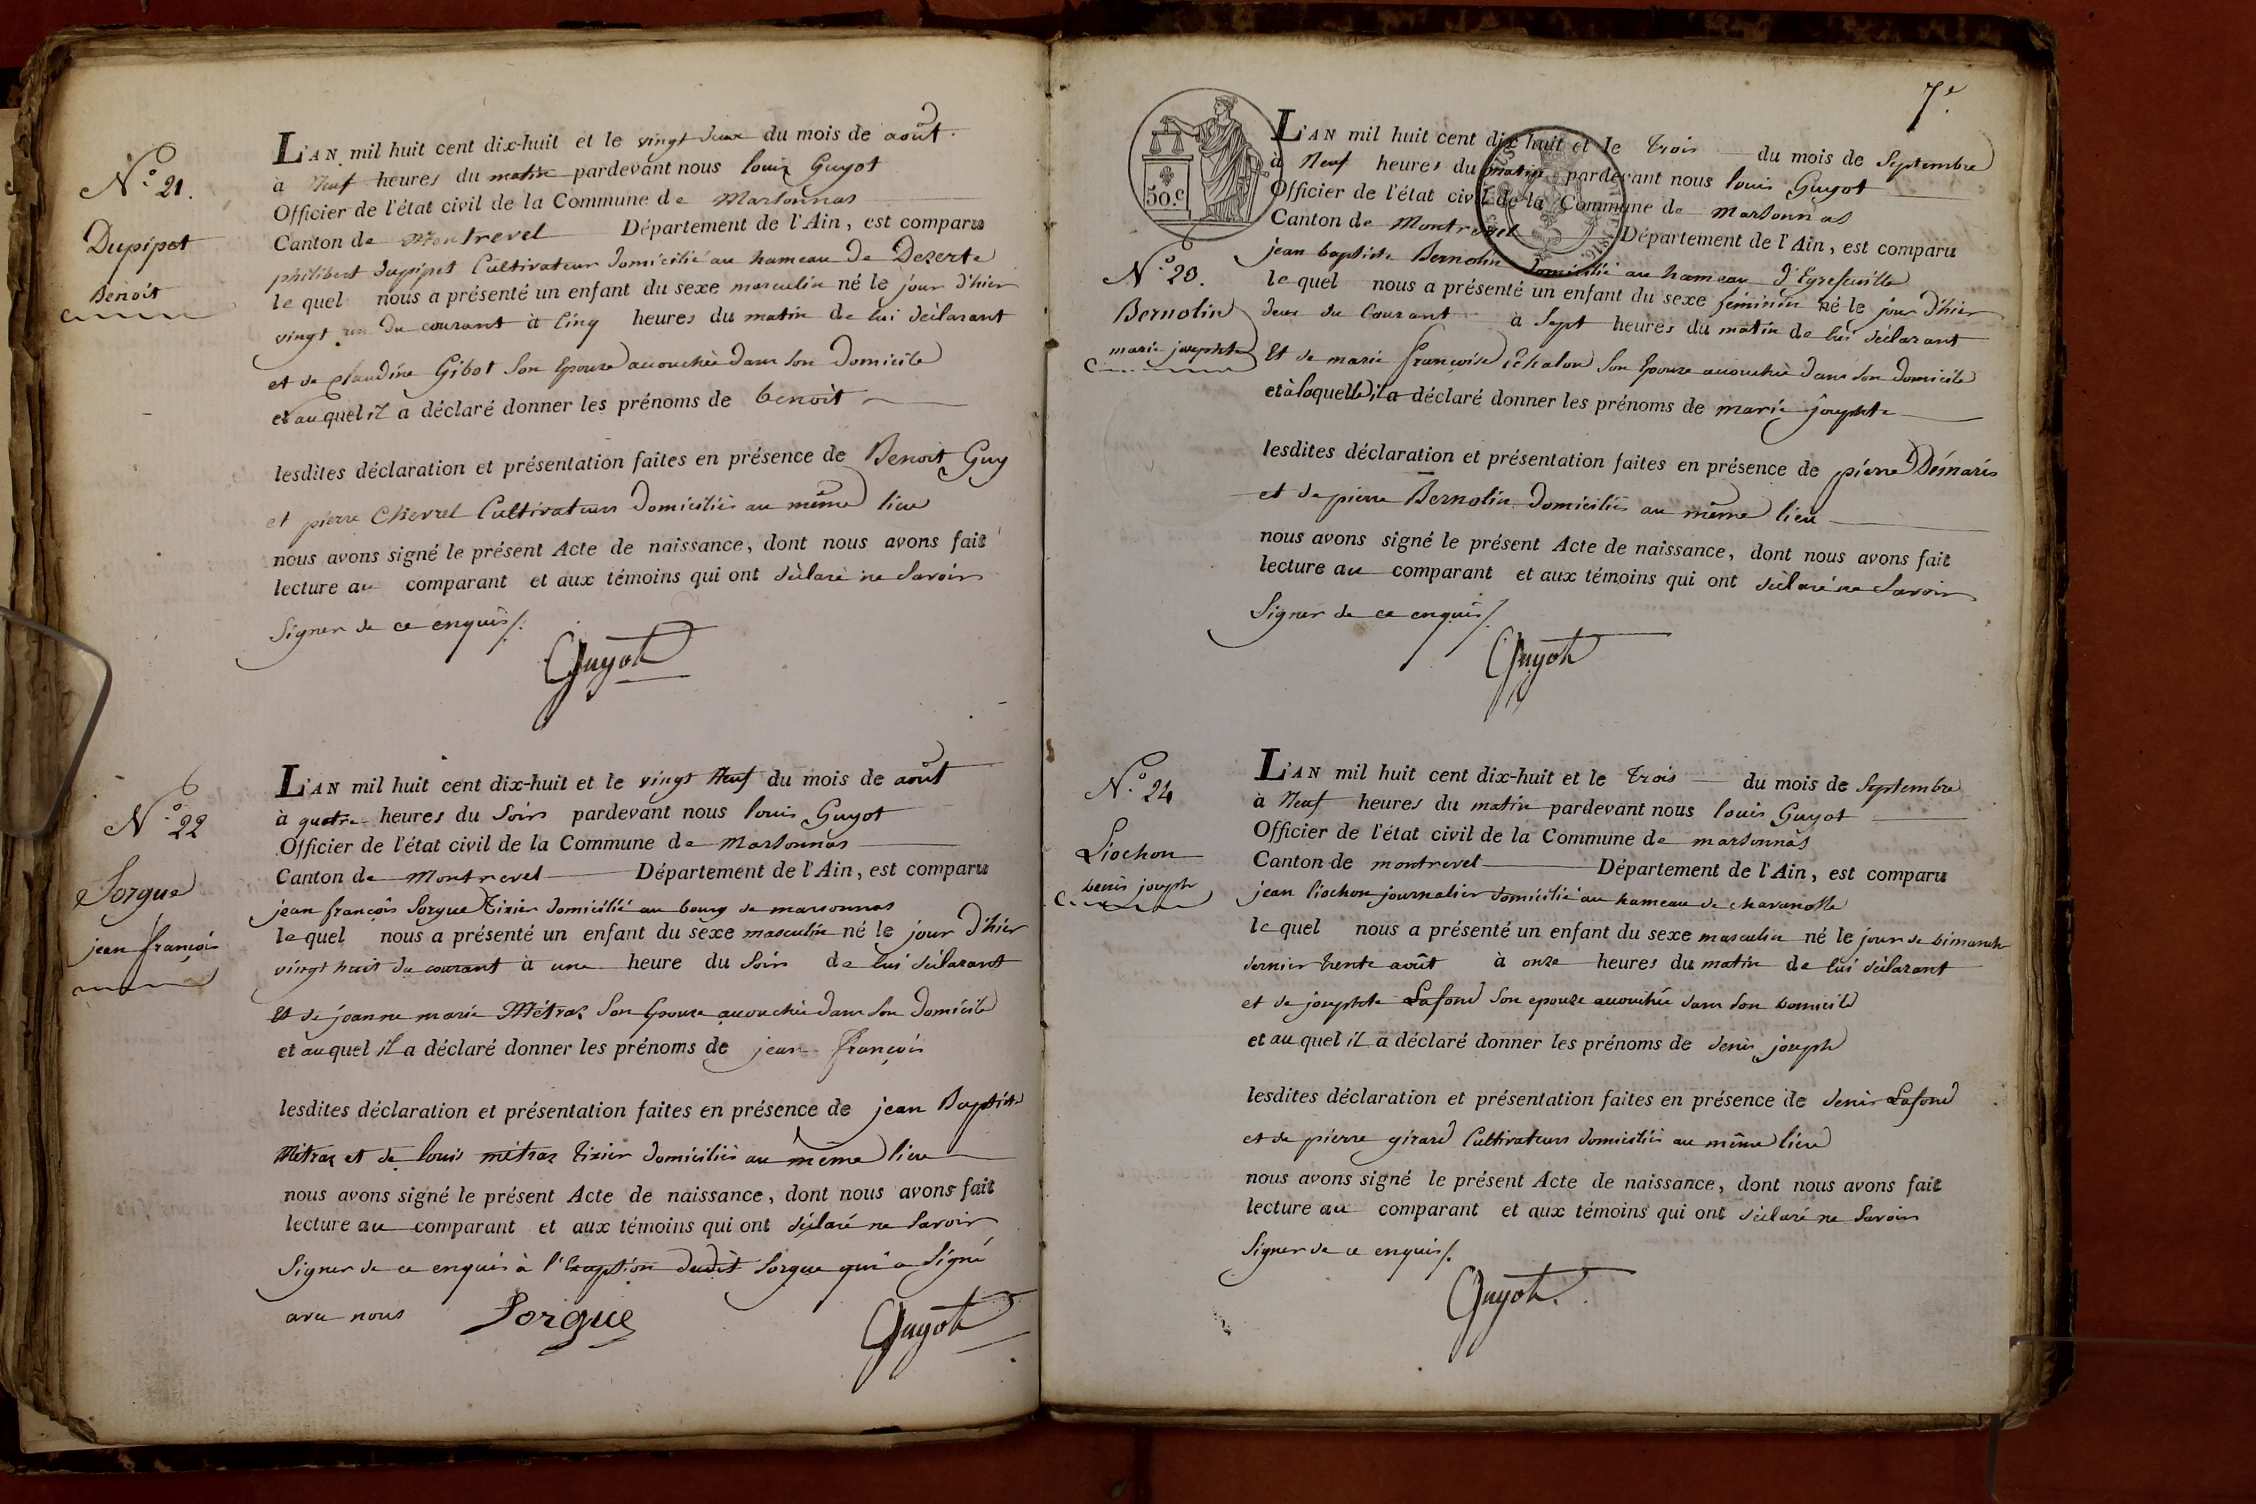 N.° 21.
Dupipet
Benoit
L'AN mil huit cent dix-huit et le vingt deux du mois de août
à Neuf heures du matin pardevant nous louis Guyot
Officier de l'état civil de la Commune de Marsonnas
Canton de Montrevel Département de l'Ain, est comparu
philibert dupipet Cultivateur domicilié au hameau de Dezerte
le quel nous a présenté un enfant du sexe masculin né le jour d'hier
vingt un du courant à Cinq heures du matin de lui déclarant
et de Claudine Gibot son Epouse accouchée dans son domicile
et au quel il a déclaré donner les prénoms de benoit
lesdites déclaration et présentation faites en présence de Benoit Guy
et pierre Chevrel Cultivateurs domiciliés au même lieu
nous avons signé le présent Acte de naissance, dont nous avons fait
lecture au comparant et aux témoins qui ont déclaré ne Savoir
Signer de ce enquis ⁒
Guyot
N.° 22
Sorgue
jean françois
L'AN mil huit cent dix-huit et le vingt Neuf du mois de août
à quatre heures du Soir pardevant nous louis Guyot
Officier de l'état civil de la Commune de Marsonnas
Canton de Montrevel Département de l'Ain, est comparu
jean françois Sorgue Tixier domicilié au bourg de marsonnas
le quel nous a présenté un enfant du sexe masculin né le jour d'hier
vingt huit du courant à une heure du Soir de lui déclarant
Et de jeanne marie Métraz Son Epouse accouchée dans Son Domicile
et au quel il a déclaré donner les prénoms de jean françois
lesdites déclaration et présentation faites en présence de jean Baptiste
Métraz et de louis métraz Tixier domiciliés au même lieu
nous avons signé le présent Acte de naissance, dont nous avons fait
lecture au comparant et aux témoins qui ont déclaré ne Savoir
Signer de ce enquis à l'Exception dudit Sorgue qui a Signé
avec nous Sorgue Guyot
7e
50.c
N.° 23.
Bernolin
marie josephte
L'AN mil huit cent dix-huit et le Trois du mois de Septembre
à Neuf heures du matin pardevant nous louis Guyot
Officier de l'état civil de la Commune de Marsonnas
Canton de Montrevel Département de l'Ain, est comparu
jean baptiste Bernolin domicilié au hameau d'Eyrefeuille
le quel nous a présenté un enfant du sexe féminin né le jour d'hier
deux du Courant à Sept heures du matin de lui déclarant
Et de marie françoise Echalon Son Epouse accouchée dans Son domicile
et à laquelle il a déclaré donner les prénoms de marie josephte
lesdites déclaration et présentation faites en présence de pierre Démaris
et de pierre Bernolin domiciliés au même lieu
nous avons signé le présent Acte de naissance, dont nous avons fait
lecture au comparant et aux témoins qui ont déclaré ne Savoir
Signer de ce enquis ⁒
Guyot
N.° 24
Liochon
denis joseph
L'AN mil huit cent dix-huit et le Trois du mois de Septembre
à Neuf heures du matin pardevant nous louis Guyot
Officier de l'état civil de la Commune de marsonnas
Canton de montrevel Département de l'Ain, est comparu
jean liochon journalier domicilié au hameau de chavanosse
le quel nous a présenté un enfant du sexe masculin né le jour de dimanche
dernier trente août à onze heures du matin de lui déclarant
et de josephte Lafond Son epouse accouchée dans Son domicile
et au quel il a déclaré donner les prénoms de denis joseph
lesdites déclaration et présentation faites en présence de denis Lafond
et de pierre girard Cultivateurs domiciliés au même lieu
nous avons signé le présent Acte de naissance, dont nous avons fait
lecture au comparant et aux témoins qui ont déclaré ne Savoir
Signer de ce enquis ⁒
Guyot